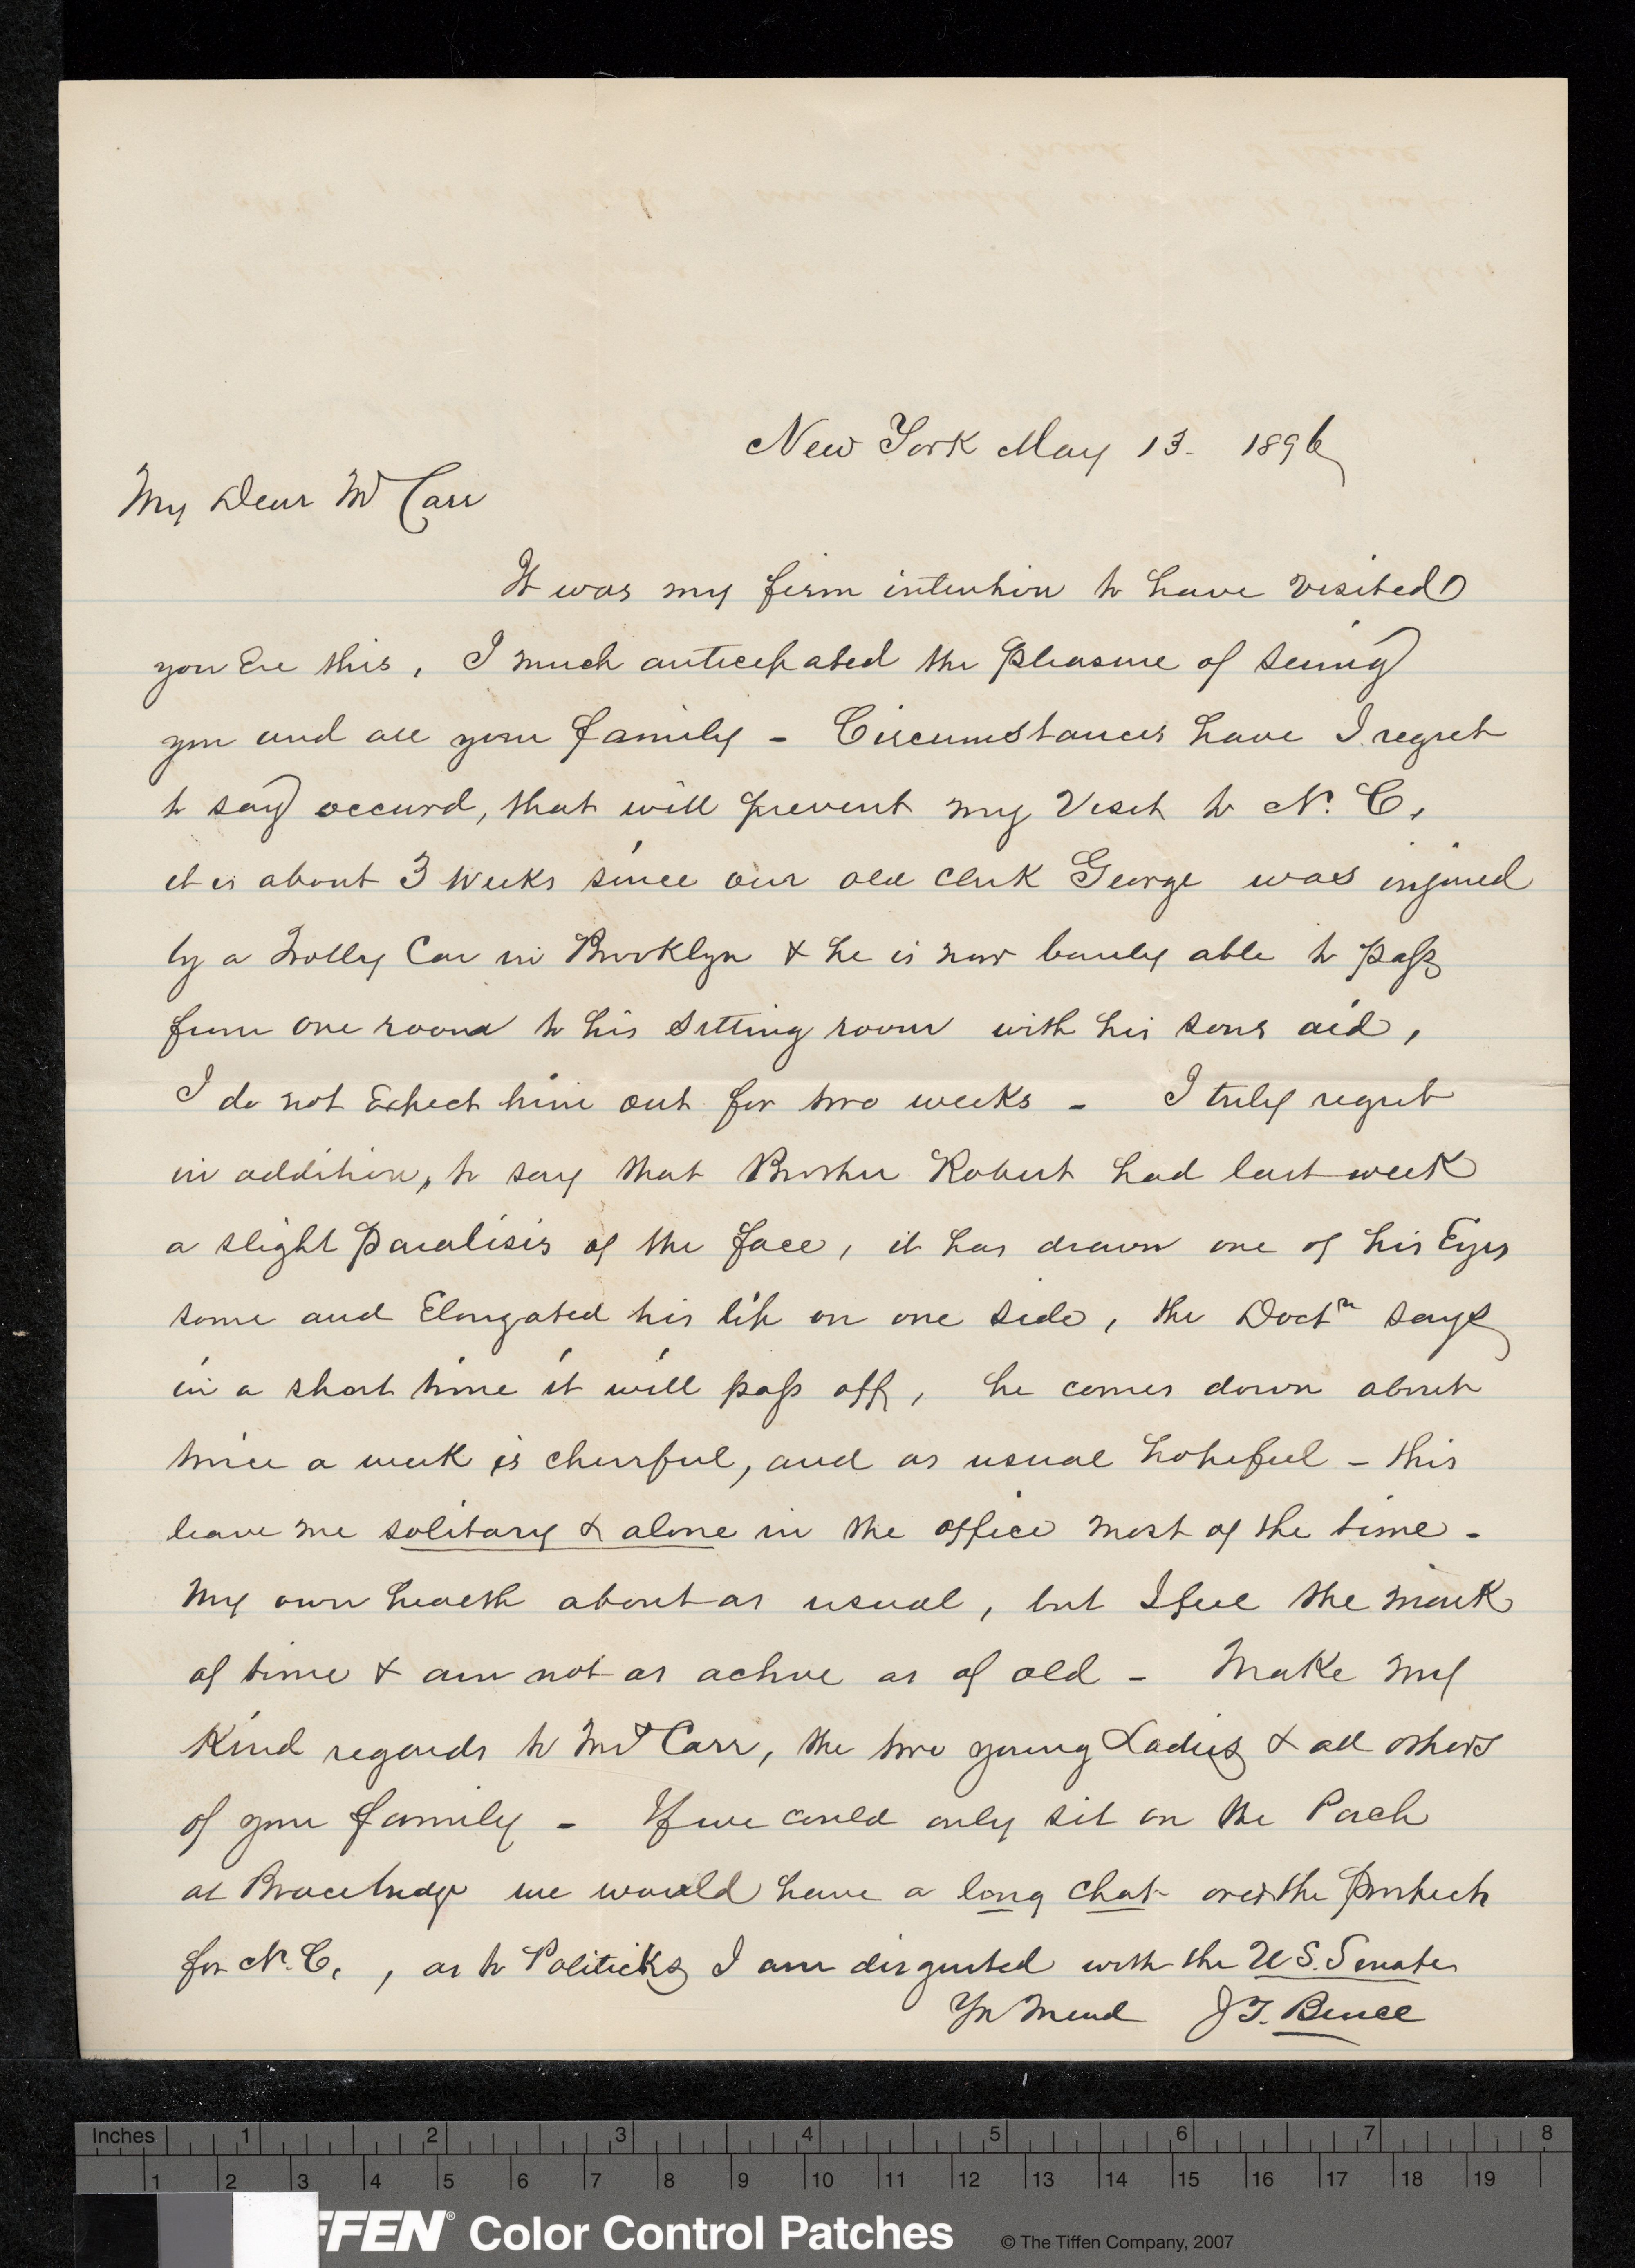 New York May 13. 1896
My Dear Mr Carr
It was my firm intention to have visited
you Ere this, I much anticepated the pleasure of seeing
you and all your family - Circumstances have I regret
to say occurd, that will prevent my Visit to N. C.
it is about 3 weeks since our old clerk George was injured
by a Trolly Car in Brooklyn & he is now barely able to pass
from one room to his sitting room with his sons aid,
I do not Expect him out for two weeks - I truly regret
in addition, to say that Brother Robert had last week
a slight Paralisis of the face, it has drawn one of his Eyes
some and Elongated his lip on one side, the Doctr says
in a short time it will pass off, he comes down about
twice a week is cheerful, and as usual hopeful - this
leave me solitary & alone in the office most of the time -
My own health about as usual, but I feel the mark
of time & am not as active as of old - Make my
Kind regards to Mrs Carr, the two young Ladies & all others
of your family - If we could only sit on the Porch
at we would have a long chat over the prospects
for N. C. , as to Politicks I am disgusted with the U S. Senate
Yr friend J T.
Inches 1 2 3 4 5 6 7 8
1 2 3 4 5 6 7 8 9 10 11 12 13 14 15 16 17 18 19
FFEN® Color Control Patches © The Tiffen Company, 2007